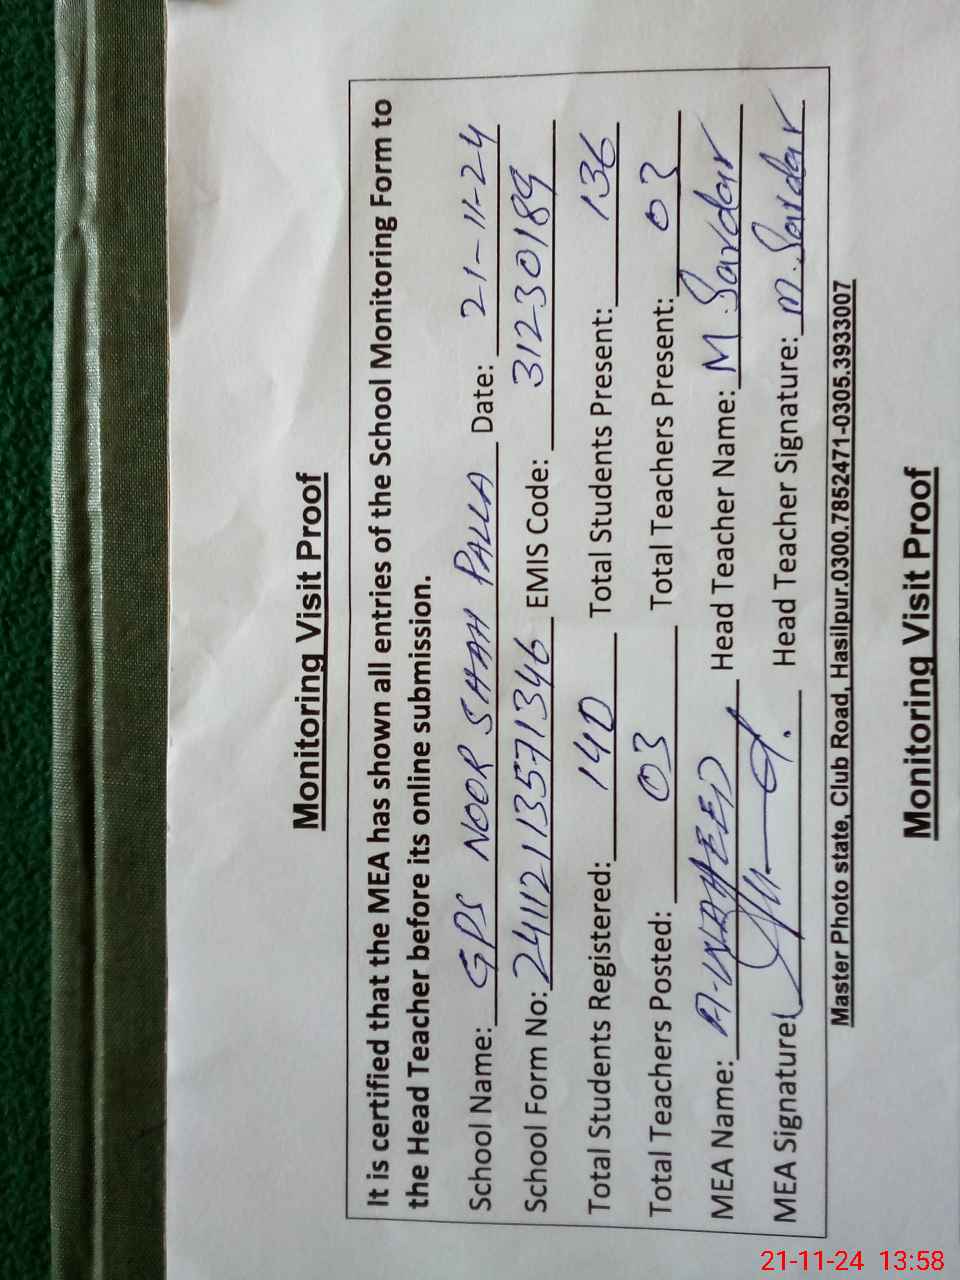 Monitoring Visit Proof
It is certified that the MEA has shown all entries of the School Monitoring Form to
the Head Teacher before its online submission.
School Name: GPS NOOR SHAH PALLA Date: 21-11-24
School Form No: 24112113571346 EMIS Code: 31230189
Total Students Registered: 140 Total Students Present: 136
Total Teachers Posted: 03 Total Teachers Present: 03
MEA Name: A-WAHEED Head Teacher Name: M Sardar
MEA Signature Head Teacher Signature: M. Sardar
Master Photo state, Club Road, Hasilpur.0300.7852471-0305.3933007
Monitoring Visit Proof
21-11-24 13:58